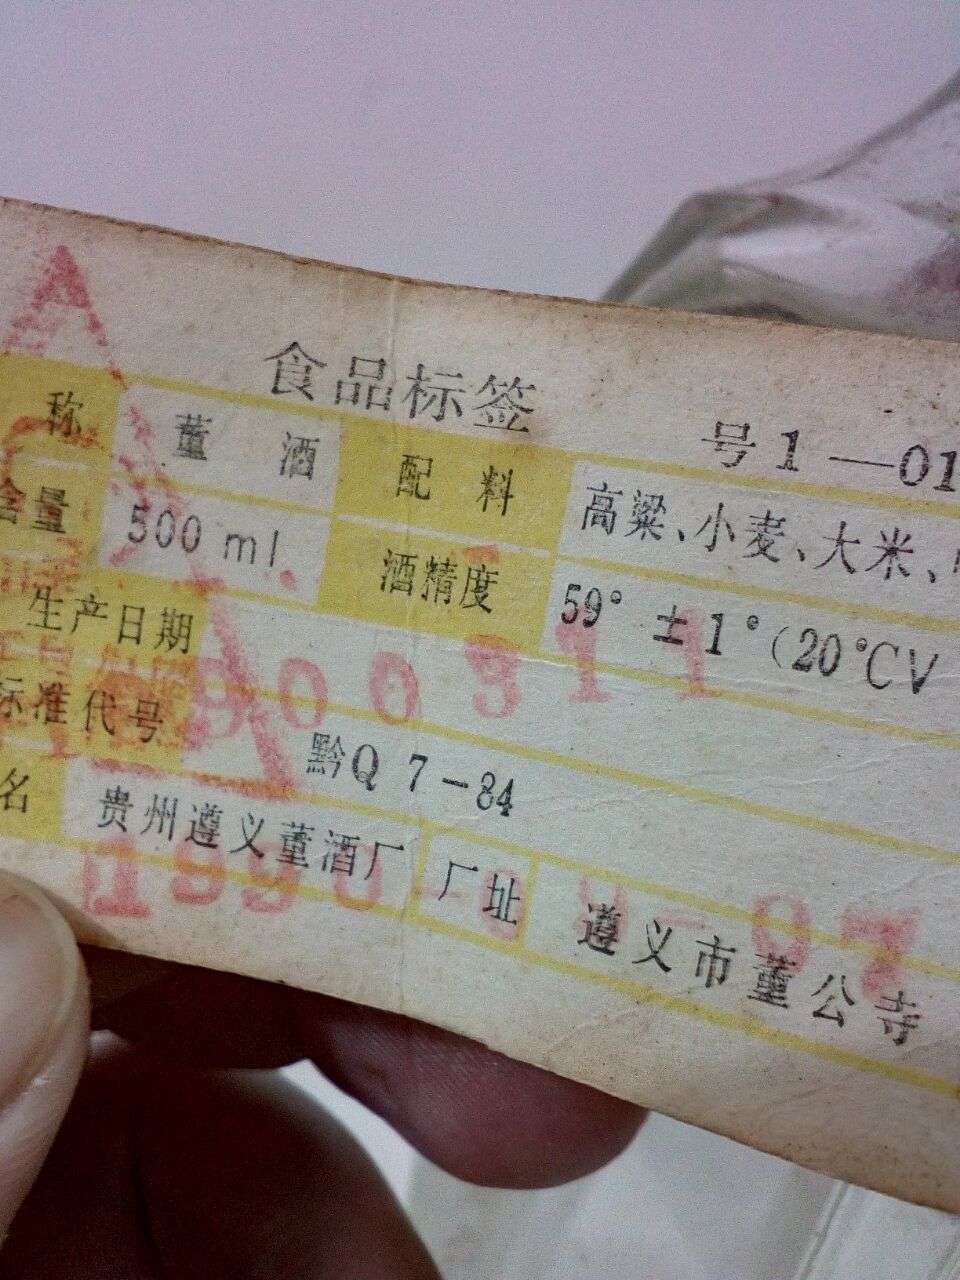 食品标签
号1—01
称 董酒 配料 高粱、小麦、大米、
含量 500 ml 酒精度 59° ±1°(20°CV
生产日期
900311
标准代号 黔Q 7-84
名 贵州遵义董酒厂 厂址 遵义市董公寺